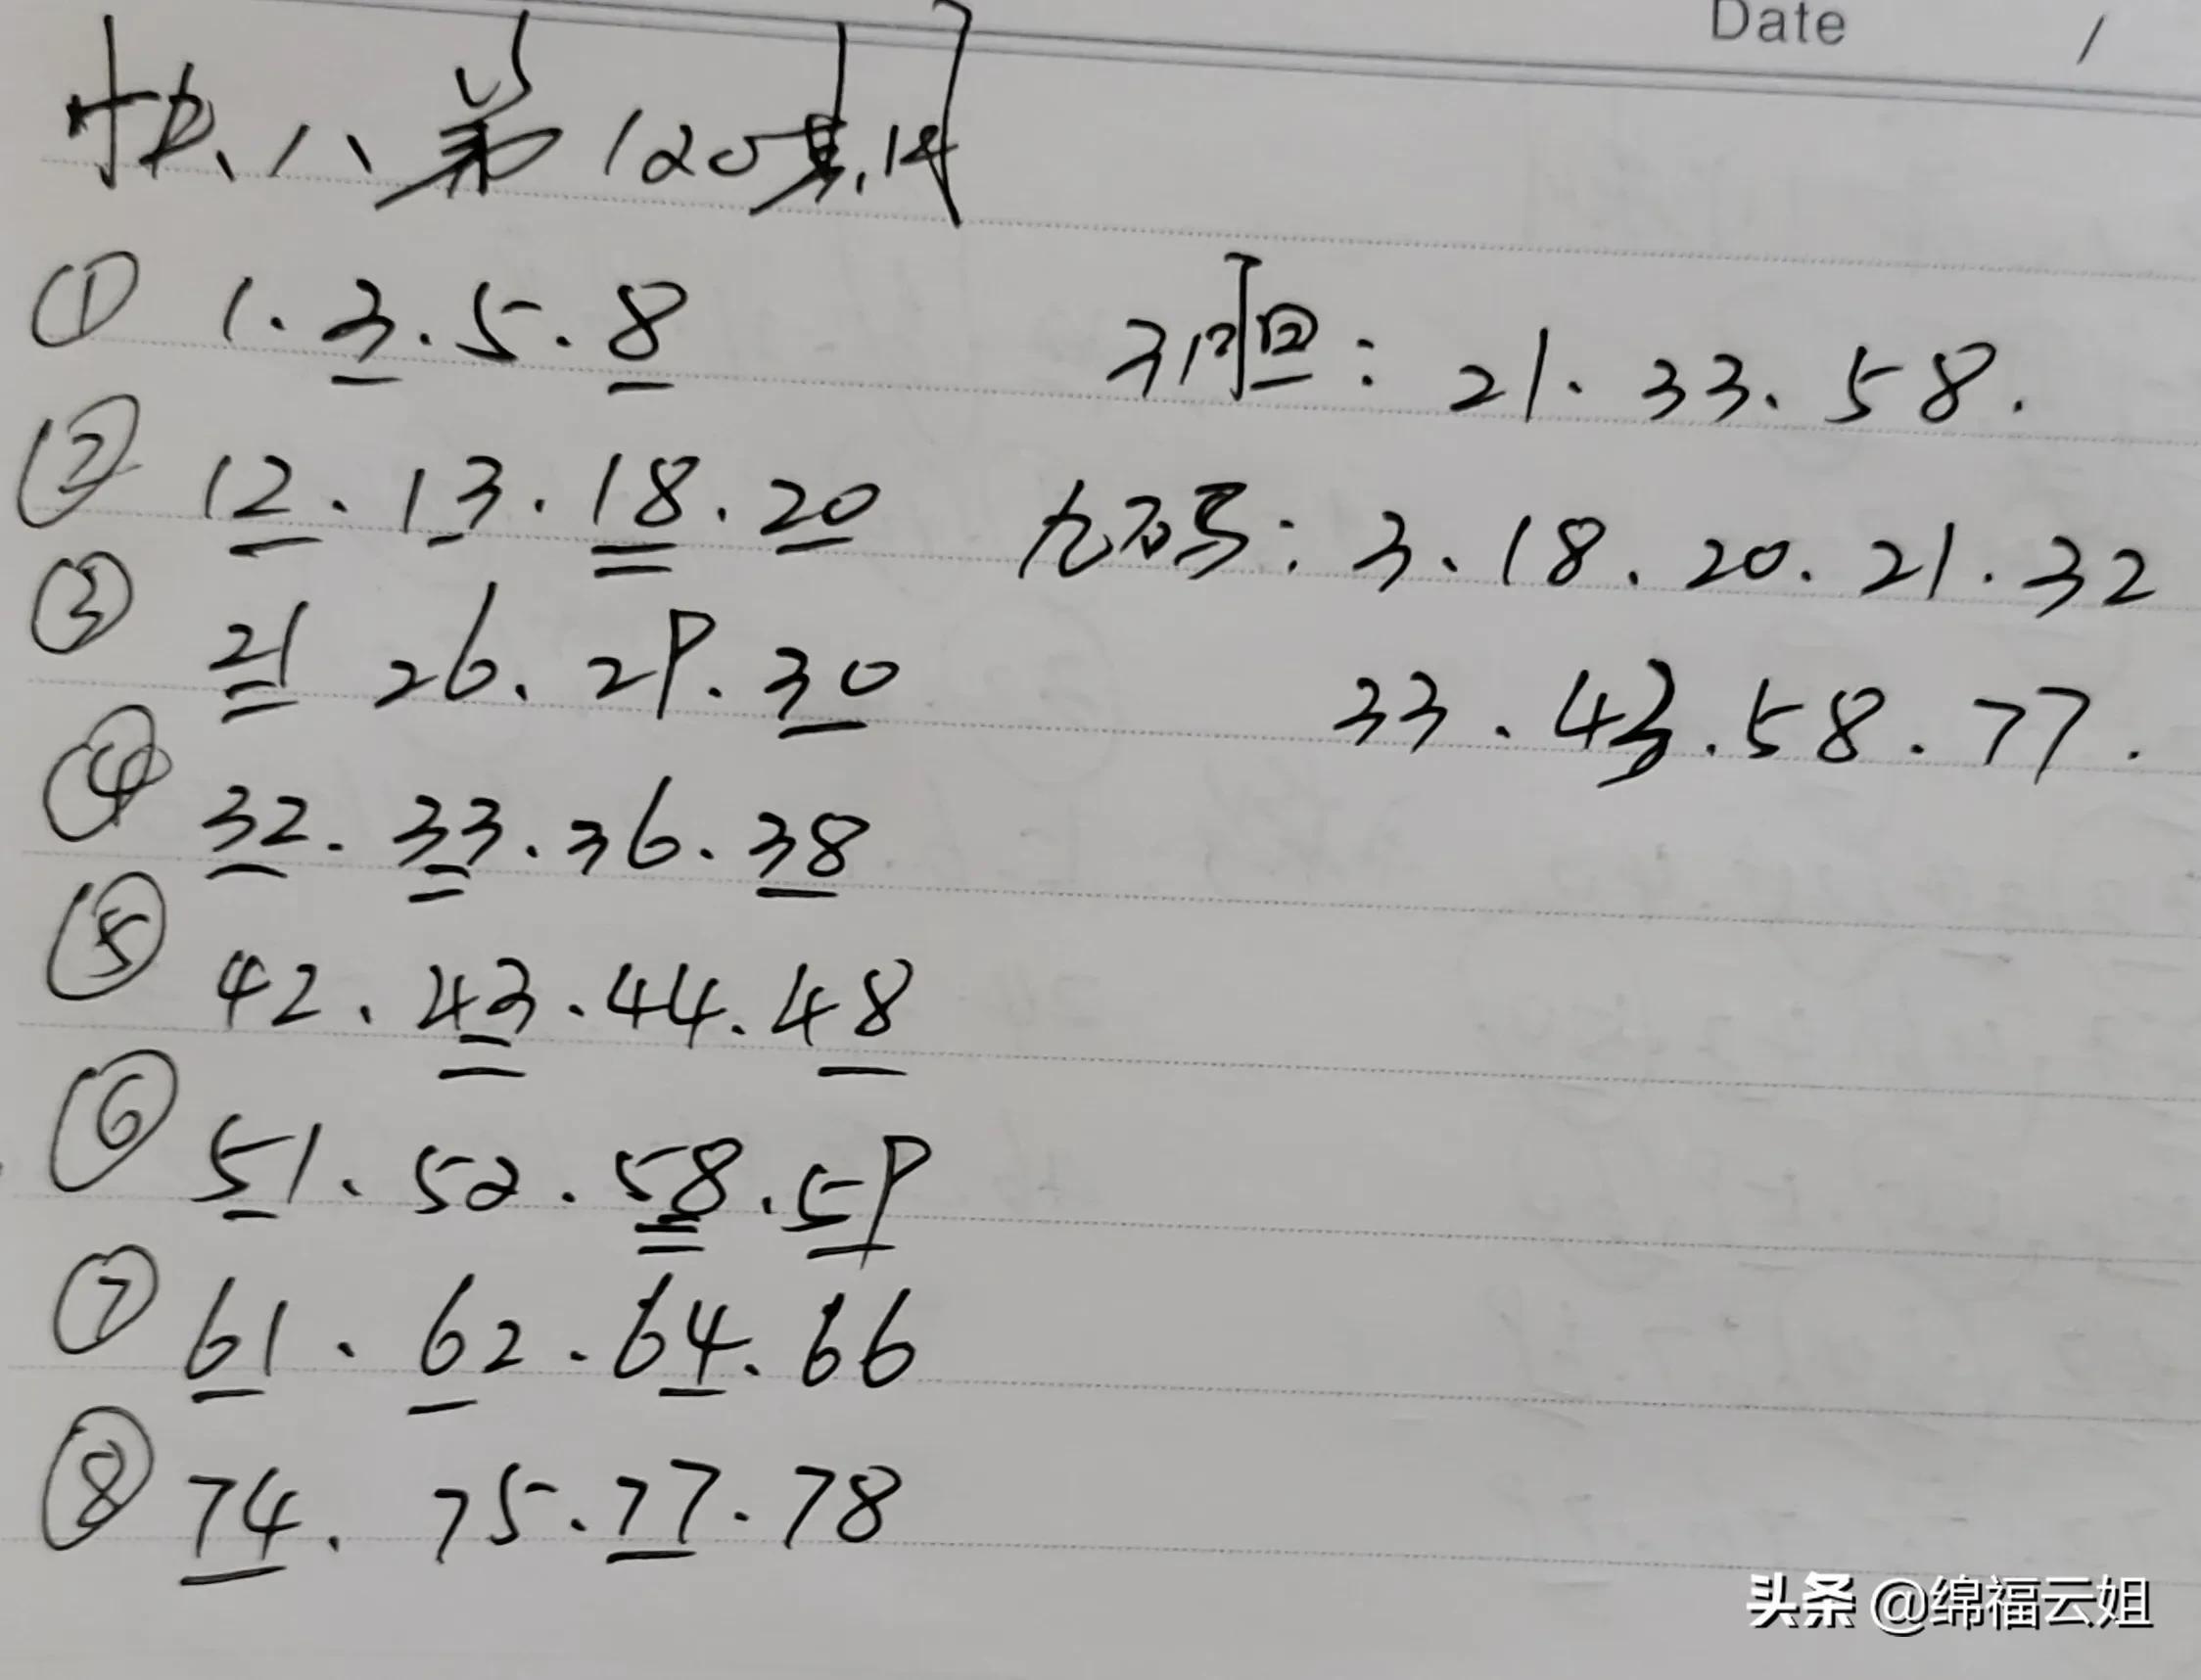 Date /
快八第120期
① 1.3.5.8
3个胆:21.33.58.
② 12.13.18.20
九码:3.18.20.21.32
③ 21 26.29.30
33.43.58.77.
④ 32.33.36.38
⑤ 42.43.44.48
⑥ 51.52.58.59
⑦ 61.62.64.66
⑧ 74.75.77.78
头条 @绵福云姐